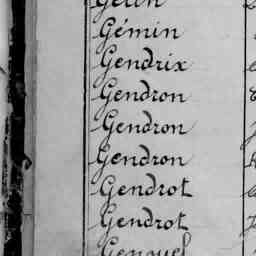 Gémin
Gendrix
Gendron
Gendron
Gendron
Gendrot
Gendrot